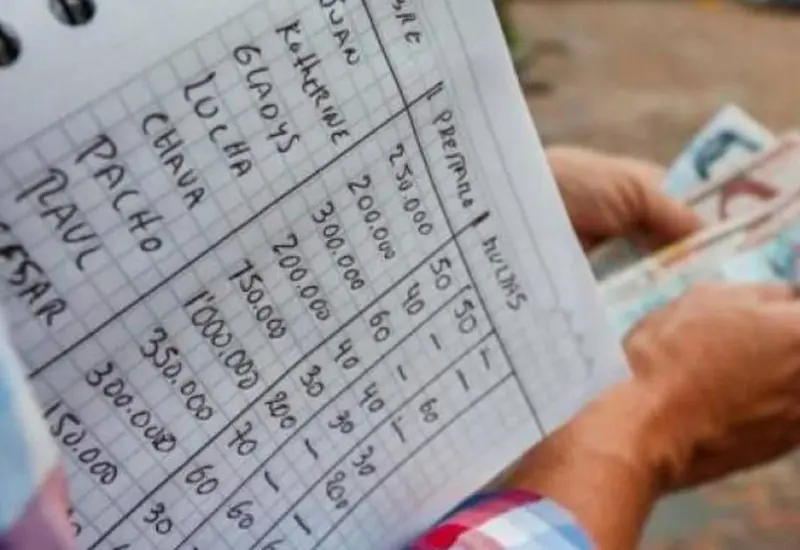 BRE PRESTAMO MULTAS
JUAN 250.000 50 50 –
KATHERINE 200.000 40 – –
GLADYS 300.000 60 – 60
LUCHA 200.000 40 40 –
CHAVA 150.000 30 30 30
PACHO 1'000.000 200 – 200
RAUL 350.000 70 –
ESAR 300.000 60 60 –
150.000 30